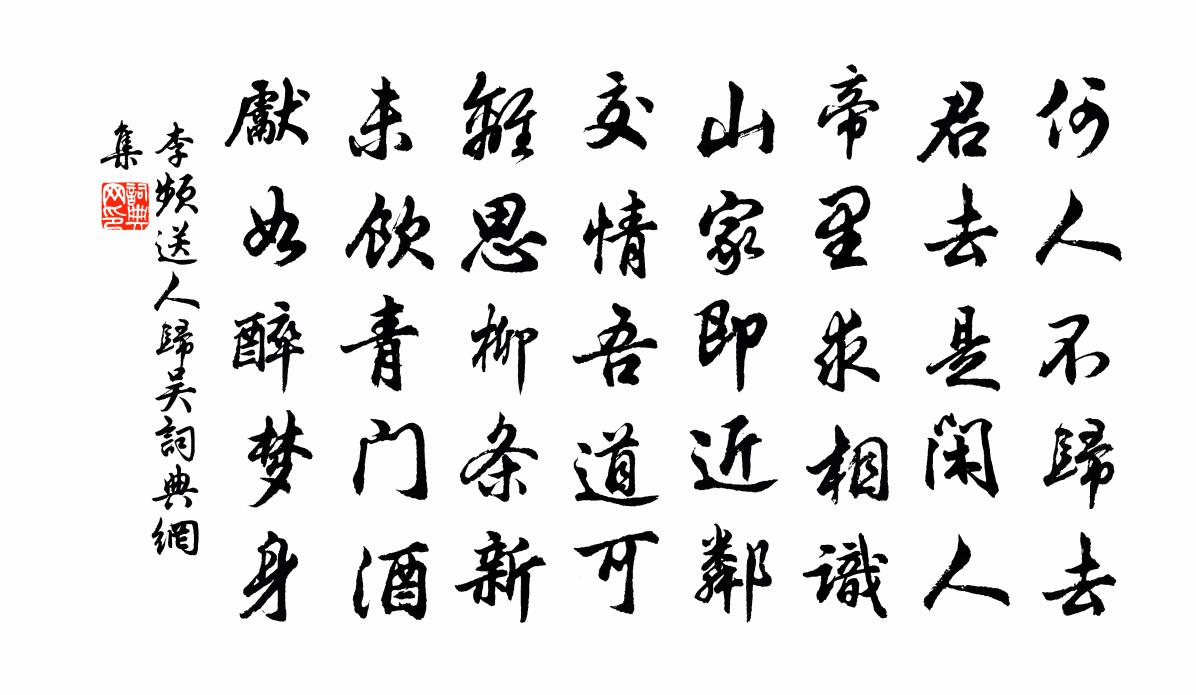 何人不歸去
君去是閑人
帝里求相識
山家即近鄰
交情吾道可
離思柳条新
未飲青门酒
獻如醉梦身
李頻送人歸吴詞典網
集
詞典
网印